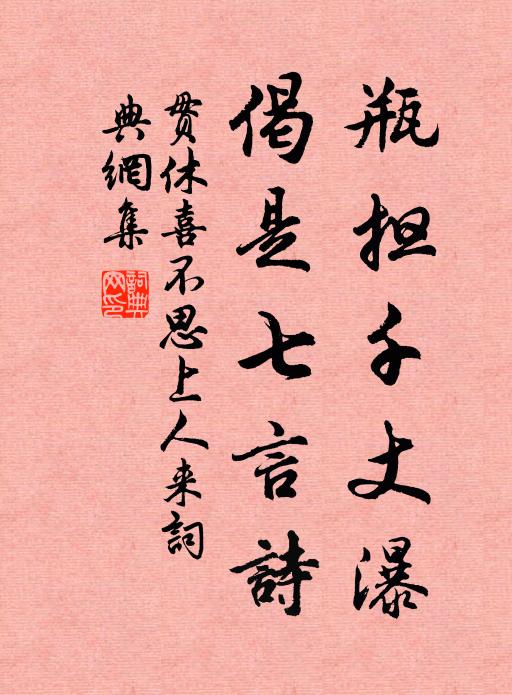 瓶担千丈瀑
偈是七言詩
贯休喜不思上人来詞
典網集
詞典网印